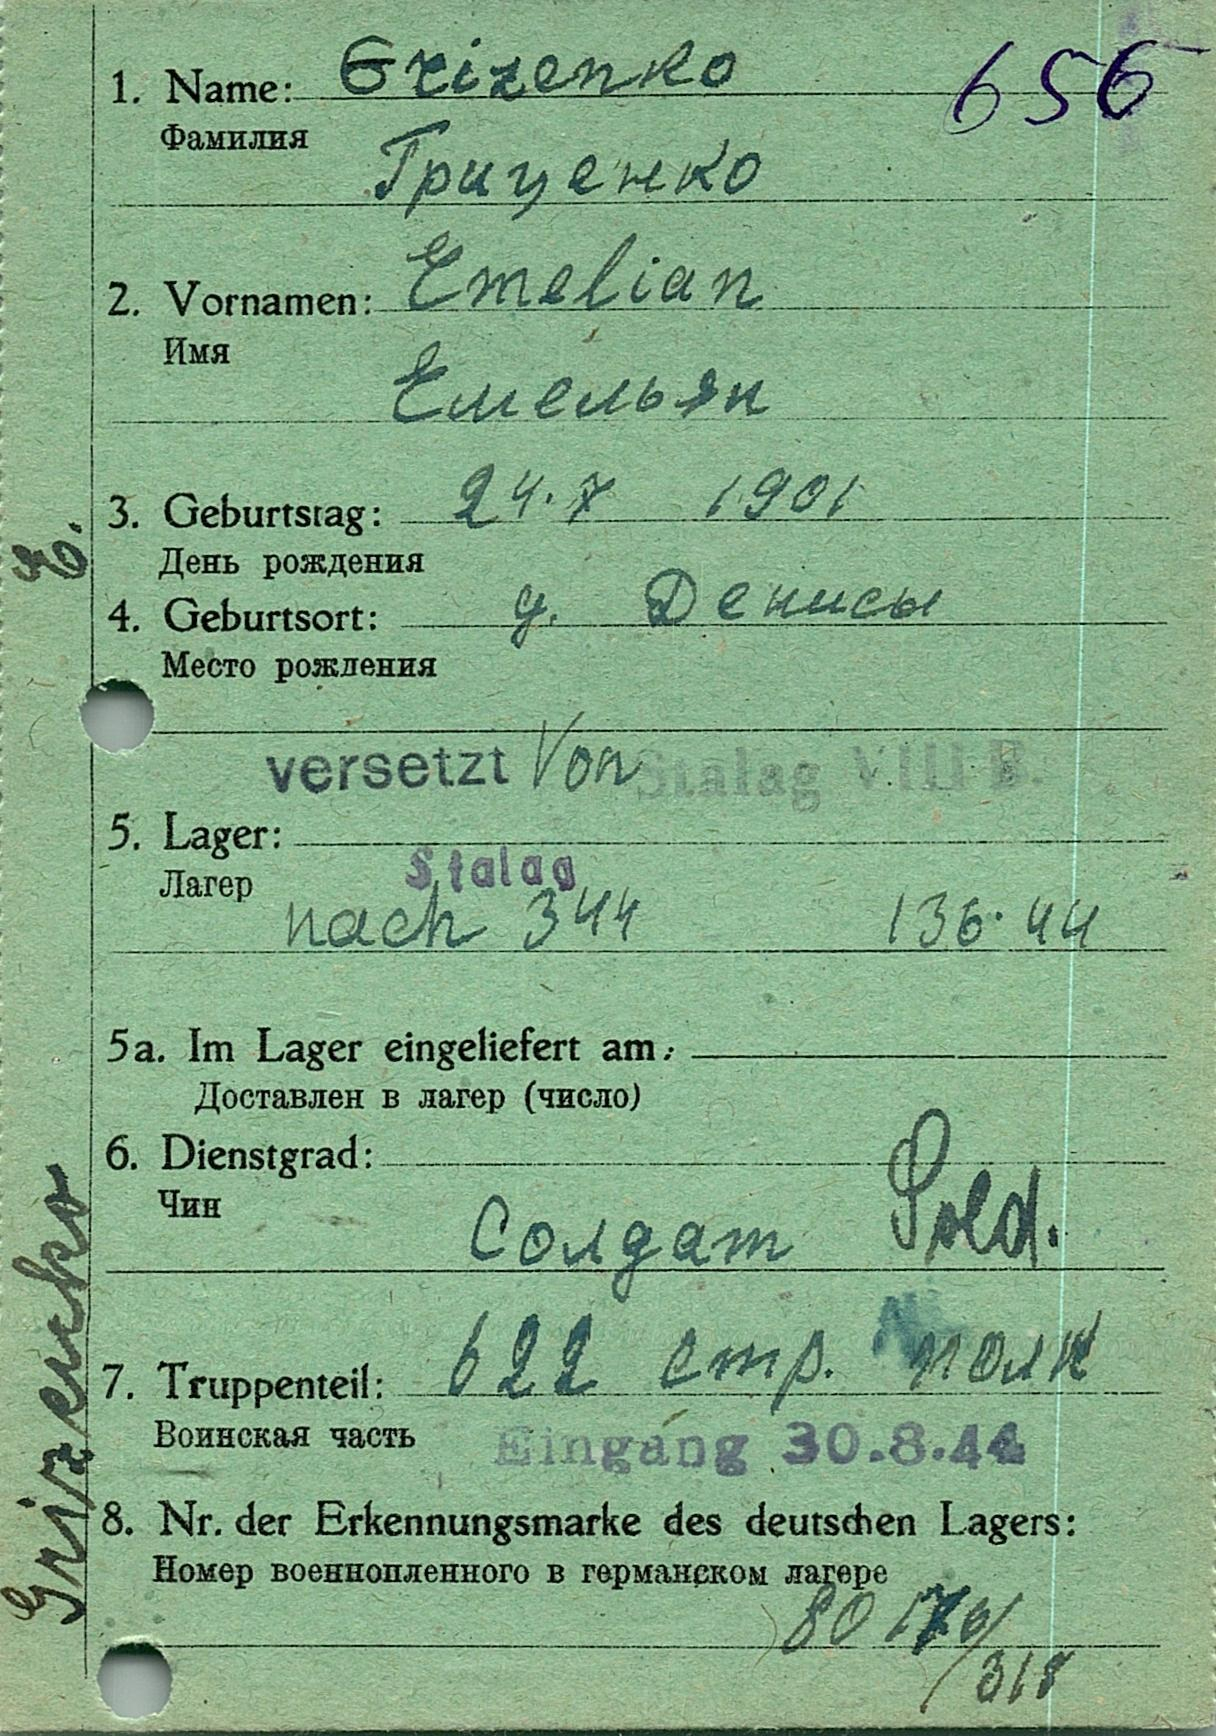 1. Name: Grizenko 656
Фамилия
Гриценко
2. Vornamen: Emelian
Имя
Емельян
3. Geburtstag: 24.7 1901
День рождения
4. Geburtsort: д. Денисы
Место рождения
versetzt Von Stalag VIII B.
5. Lager:
Лагер Stalag
nach 344 136.44
5a. Im Lager eingeliefert am:
Доставлен в лагер (число)
6. Dienstgrad:
Чин
Солдат Sold.
7. Truppenteil: 622 стр. полк
Воинская часть
Eingang 30.8.44
8. Nr. der Erkennungsmarke des deutschen Lagers:
Номер военнопленного в германском лагере
80176/
318
Grizenko E.